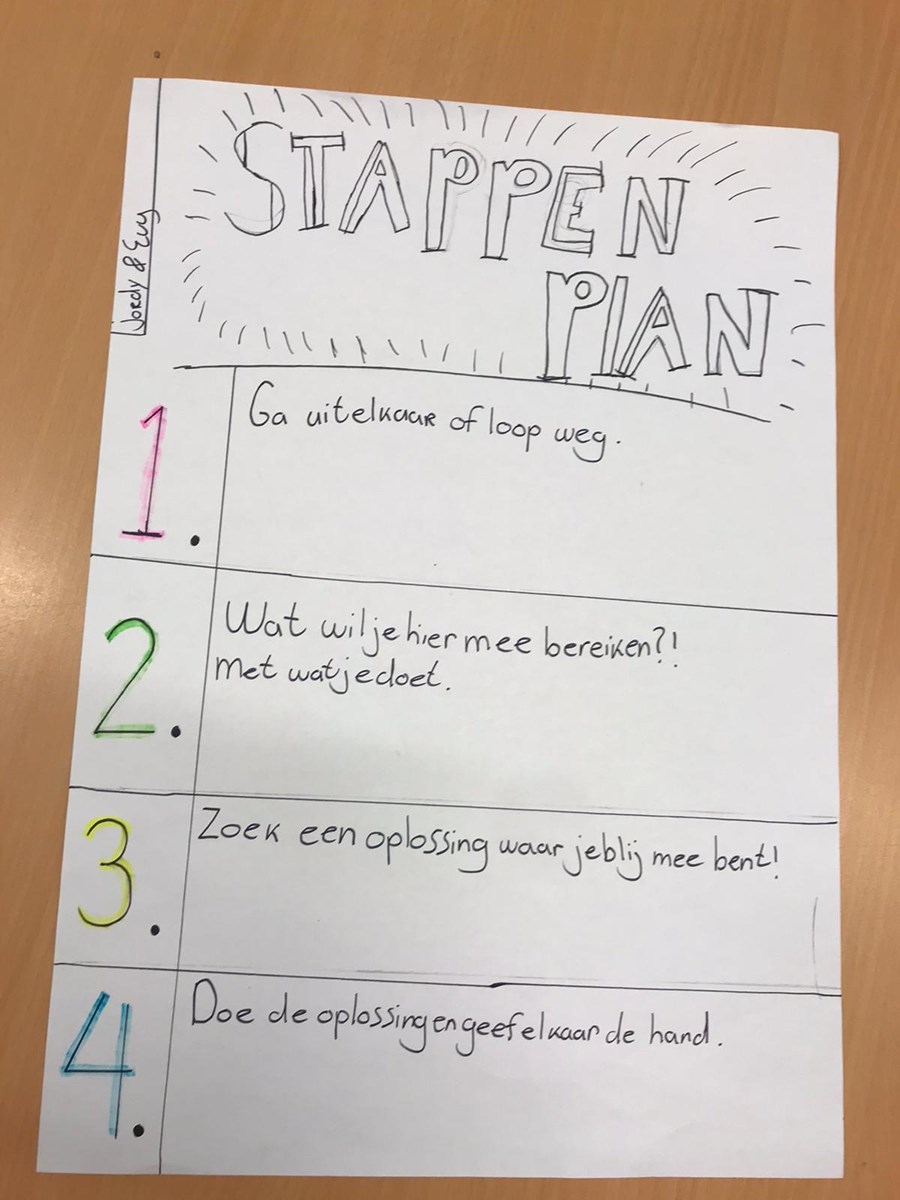 STAPPEN
PLAN
Jordy & Evy
1.
Ga uitelkaar of loop weg.
2.
Wat wil je hier mee bereiken?!
met wat je doet.
3.
Zoek een oplossing waar je blij mee bent!
4.
Doe de oplossing en geef elkaar de hand.